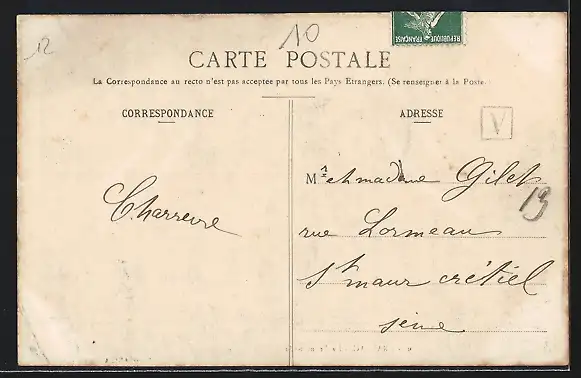 12
10
REPUBLIQUE FRANÇAISE
CARTE POSTALE
La Correspondance au recto n'est pas acceptée par tous les Pays Etrangers. (Se renseigner à la Poste.)
CORRESPONDANCE
ADRESSE
V
Mr et madame Gilet
19
Charrevre
rue Lormeau
St maur crétiel
seine